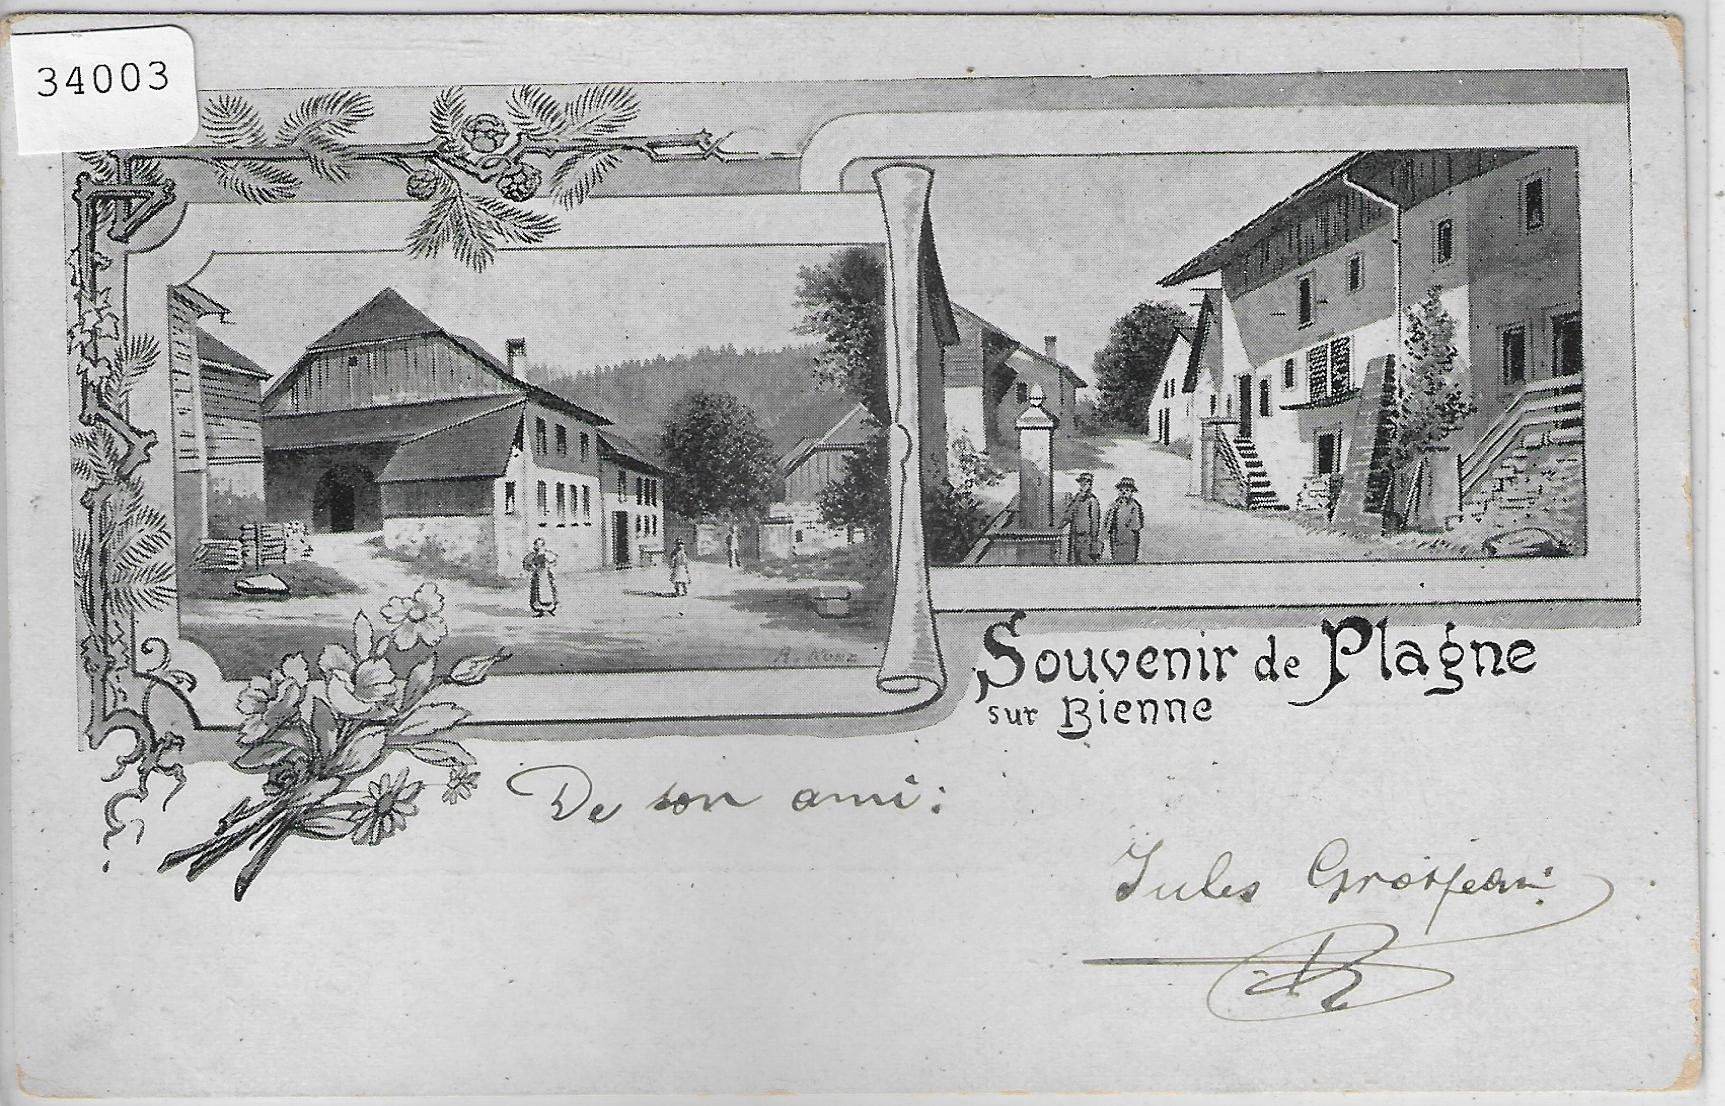 34003
A. Kunz
Souvenir de Plagne
sur Bienne
De son ami:
Jules Grosjean